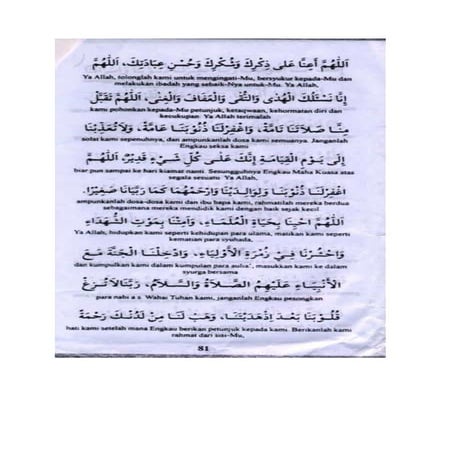 اَللّٰهُمَّ أَعِنَّا عَلَى ذِكْرِكَ وَشُكْرِكَ وَحُسْنِ عِبَادَتِكَ، اَللّٰهُمَّ
Ya Allah, tolonglah kami untuk mengingati-Mu, bersyukur kepada-Mu dan
melakukan ibadah yang sebaik-Nya untuk-Mu. Ya Allah,
إِنَّا نَسْئَلُكَ الْهُدَى وَالتُّقَى وَالْعَفَافَ وَالْغِنَى، اَللّٰهُمَّ تَقَبَّلْ
kami pohonkan kepada-Mu petunjuk, ketaqwaan, kehormatan diri dan
kecukupan. Ya Allah terimalah
مِنَّا صَلَاتَنَا تَامَّةً، وَاغْفِرْلَنَا ذُنُوْبَنَا عَامَّةً، وَلَا تُعَذِّبْنَا
solat kami sepenuhnya, dan ampunkanlah dosa kami semuanya. Janganlah
Engkau seksa kami
إِلَى يَوْمِ الْقِيَامَةِ إِنَّكَ عَلَى كُلِّ شَيْءٍ قَدِيْرٌ، اَللّٰهُمَّ
biar pun sampai ke hari kiamat nanti. Sesungguhnya Engkau Maha Kuasa atas
segala sesuatu. Ya Allah,
اغْفِرْلَنَا ذُنُوْبَنَا وَلِوَالِدِيْنَا وَارْحَمْهُمَا كَمَا رَبَّيَانَا صَغِيْرًا.
ampunkanlah dosa-dosa kami dan ibu bapa kami, rahmatilah mereka berdua
sebagaimana mereka mendidik kami dengan baik sejak kecil
اَللّٰهُمَّ احْيِنَا بِحَيَاةِ الْعُلَمَاءِ، وَأَمِتْنَا بِمَوْتِ الشُّهَدَاءِ
Ya Allah, hidupkan kami seperti kehidupan para ulama, matikan kami seperti
kematian para syuhada,
وَاحْشُرْنَا فِيْ زُمْرَةِ الْأَوْلِيَاءِ، وَادْخِلْنَا الْجَنَّةَ مَعَ
dan kumpulkan kami dalam kumpulan para aulia', masukkan kami ke dalam
syurga bersama
الْأَنْبِيَاءِ عَلَيْهِمُ الصَّلَاةُ وَالسَّلَامُ، رَبَّنَا لَا تُزِغْ
para nabi a.s Wahai Tuhan kami, janganlah Engkau pesongkan
قُلُوْبَنَا بَعْدَ إِذْ هَدَيْتَنَا، وَهَبْ لَنَا مِنْ لَدُنْكَ رَحْمَةً
hati kami setelah mana Engkau berikan petunjuk kepada kami. Berikanlah kami
rahmat dari sisi-Mu,
81